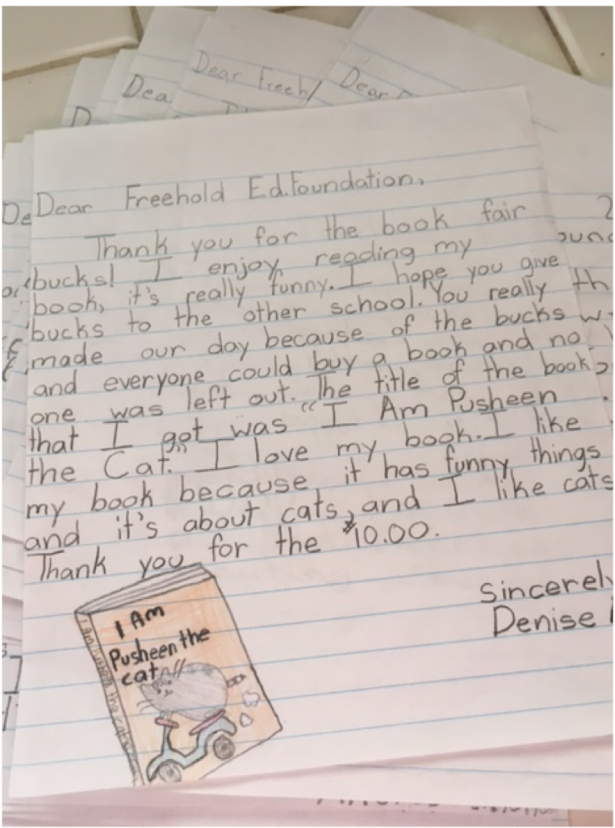 Dea
Dear Freeh
Dear
D
De
Dear Freehold Ed.Foundation,
Thank you for the book fair
bucks! I enjoy reading my
book, it's really funny. I hope you give
bucks to the other school. You really
made our day because of the bucks
and everyone could buy a book and no
one was left out. The title of the book
that I got was "I Am Pusheen
the Cat." I love my book. I like
my book because it has funny things
and it's about cats, and I like cats
Thank you for the $10.00.
Sincerel
Denise
I Am
Pusheen the
cat